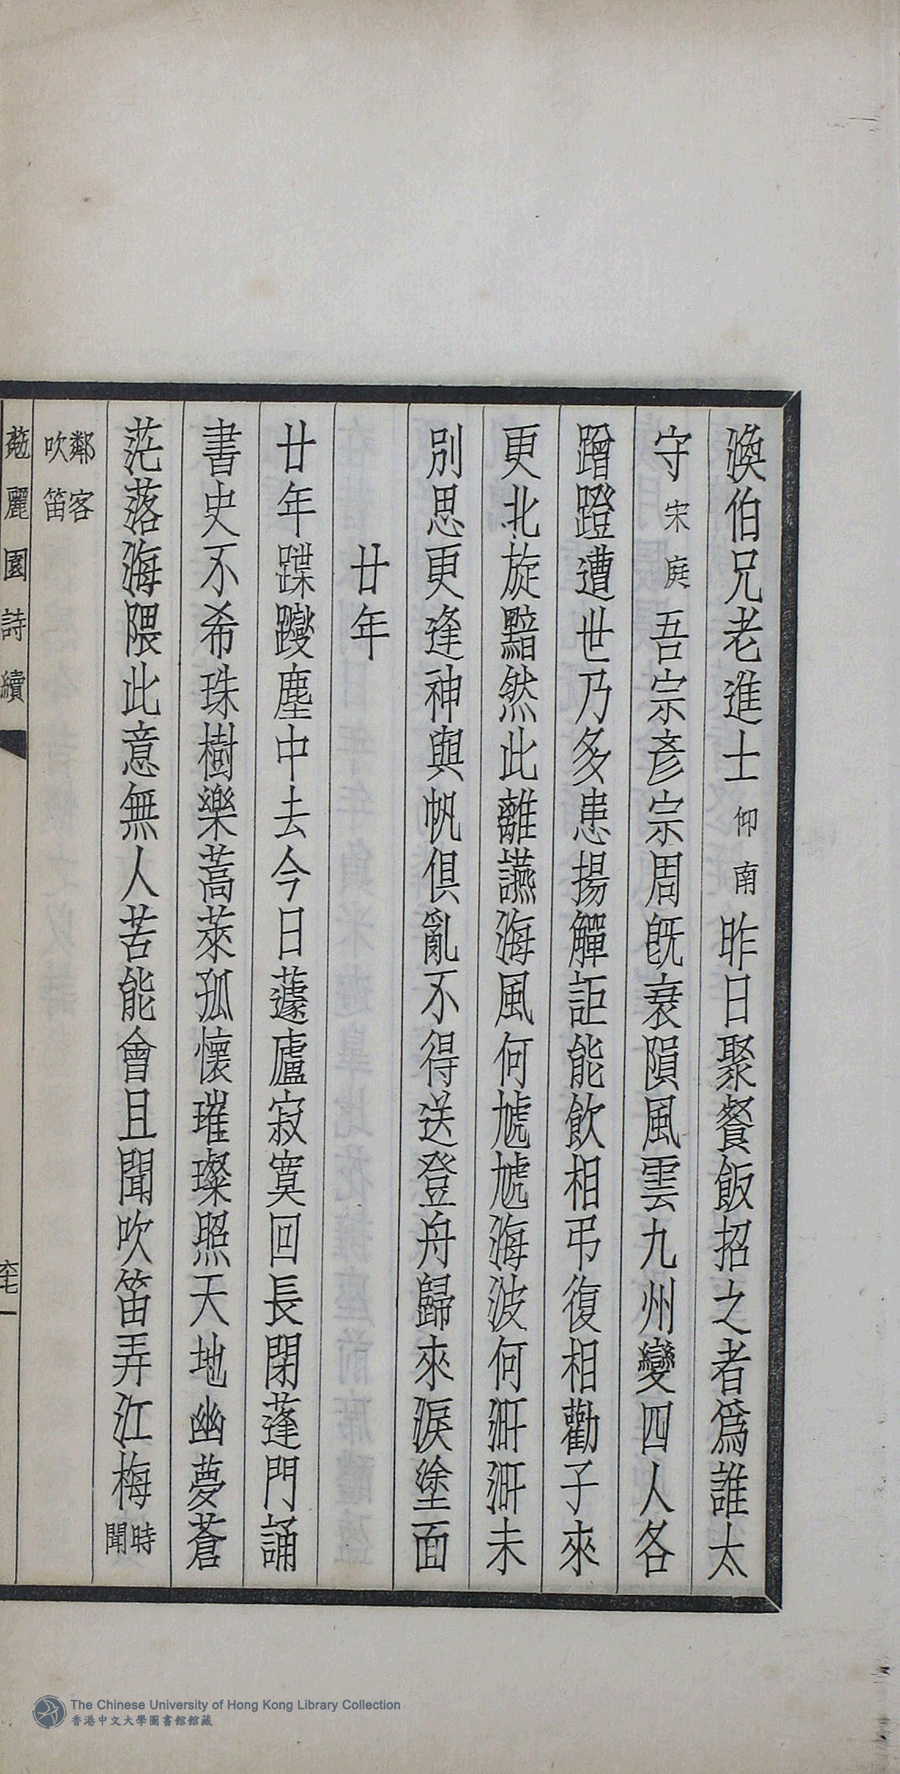 渙伯兄老進士仰南昨日聚餐飯招之者爲誰太
守宋庭吾宗彥宗周旣衰隕風雲九州變四人各
蹭蹬遭世乃多患揚觶詎能飲相弔復相勸子來
更北旋黯然此離讌海風何虓虓海波何漭漭未
別思更逢神與帆俱亂不得送登舟歸來淚塗面
廿年
廿年蹀躞塵中去今日蘧廬寂寞回長閉蓬門誦
書史不希珠樹樂蒿萊孤懷璀璨照天地幽夢蒼
茫落海隈此意無人苦能會且聞吹笛弄江梅時聞
鄰客吹笛
麗園詩續
The Chinese University of Hong Kong Library Collection
香港中文大學圖書館館藏